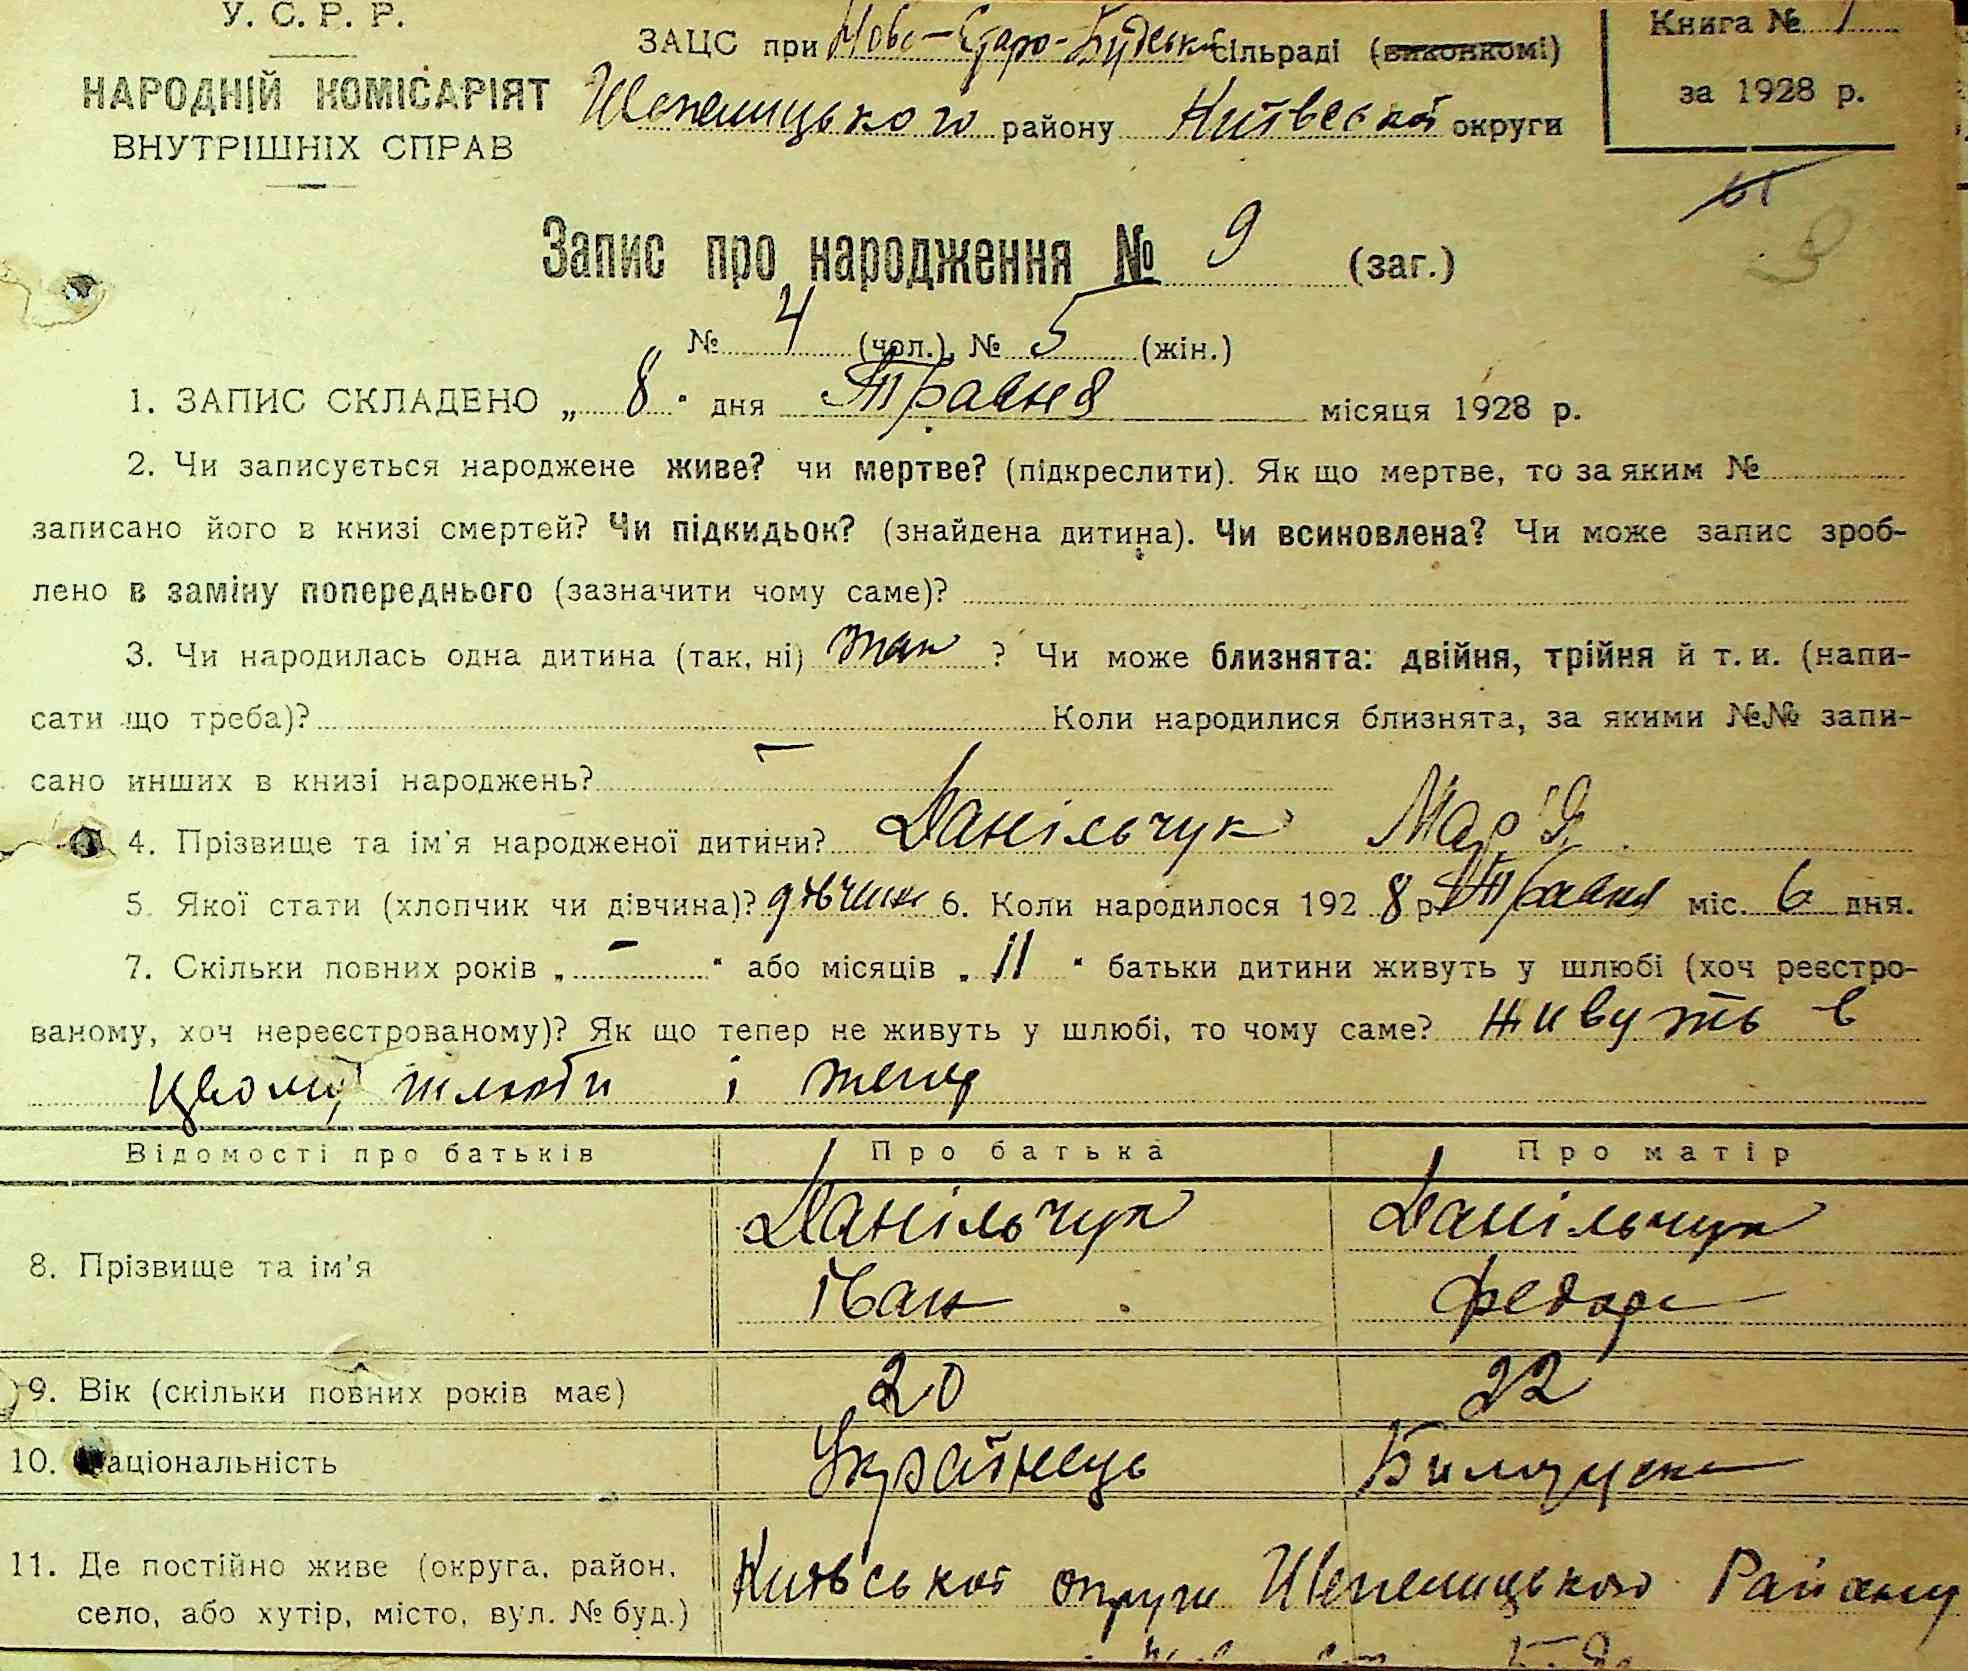 У. С. Р. Р.
НАРОДНІЙ КОМІСАРІЯТ
ВНУТРІШНІХ СПРАВ
ЗАЦС при Ново-Старо-Будській сільраді (виконкомі)
Шепелицького району Київської округи
Книга № 1
за 1928 р.
61
9
Запис про народження № 9 (заг.)
№ 4 (чол.), № 5 (жін.)
1. ЗАПИС СКЛАДЕНО „ 8 " дня Травня місяця 1928 р.
2. Чи записується народжене живе? чи мертве? (підкреслити). Як що мертве, то за яким №
записано його в книзі смертей? Чи підкидьок? (знайдена дитина). Чи всиновлена? Чи може запис зроб-
лено в заміну попереднього (зазначити чому саме)?
3. Чи народилась одна дитина (так, ні) так ? Чи може близнята: двійня, трійня й т. и. (напи-
сати що треба)? Коли народилися близнята, за якими №№ запи-
сано инших в книзі народжень? —
4. Прізвище та ім'я народженої дитини? Данільчук Мар'я
5. Якої стати (хлопчик чи дівчина)? дівчина 6. Коли народилося 192 8 р. Травня міс. 6 дня.
7. Скільки повних років „ — " або місяців „ 11 " батьки дитини живуть у шлюбі (хоч реєстро-
ваному, хоч нереєстрованому)? Як що тепер не живуть у шлюбі, то чому саме? живуть в
цьому шлюби і тепер
Відомості про батьків Про батька Про матір
8. Прізвище та ім'я Данільчук Іван Данільчук Федора
9. Вік (скільки повних років має) 20 22
10. Національність Українець
11. Де постійно живе (округа, район,
село, або хутір, місто, вул. № буд.) Київської округи Шепелицького Району